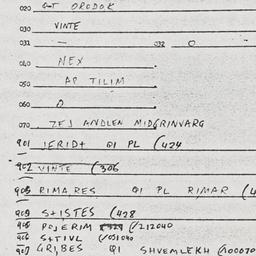 020 G-T ORODOK
030 VINTE
031 — 032 O
040 NEX
050 AP TILIM
060 O
070 7FJ ANDLEN MIDGRINVARG
901 JFRID+ QI PL (424
902 VINTE (306
903 RIMARES QI PL RIMAR (4
904 S+ISTES (428
905 POJERIM (/212040
906 S+TIVL (/051040
907 GRIBES QI SHVEMLEKH (/00070